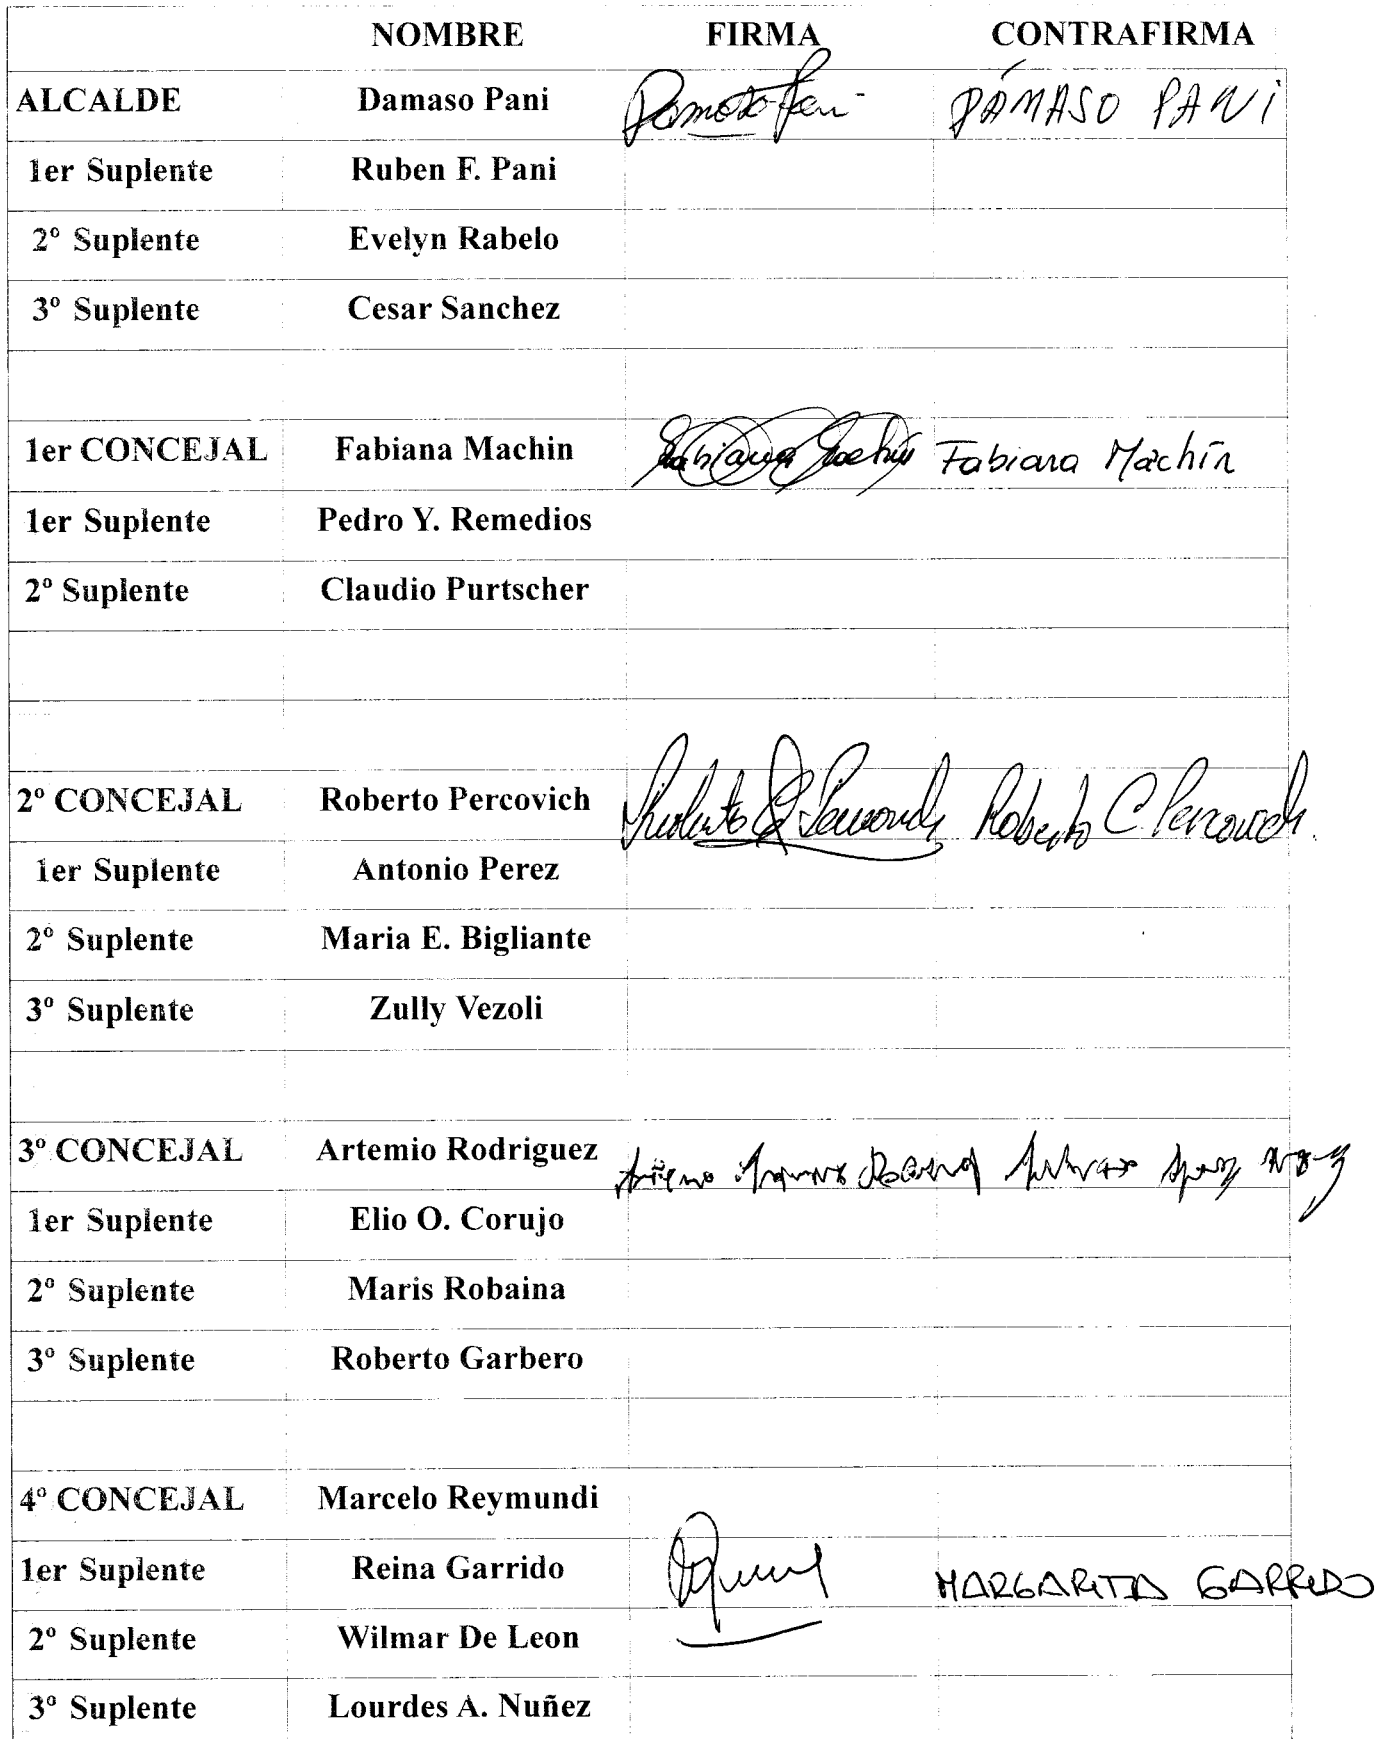 NOMBRE FIRMA CONTRAFIRMA
ALCALDE Damaso Pani Damaso Pani DÁMASO PANI
1er Suplente Ruben F. Pani
2º Suplente Evelyn Rabelo
3º Suplente Cesar Sanchez
1er CONCEJAL Fabiana Machin Fabiana Machin Fabiana Machín
1er Suplente Pedro Y. Remedios
2º Suplente Claudio Purtscher
2º CONCEJAL Roberto Percovich Roberto C Percovich Roberto C Percovich.
1er Suplente Antonio Perez
2º Suplente Maria E. Bigliante
3º Suplente Zully Vezoli
3º CONCEJAL Artemio Rodriguez
1er Suplente Elio O. Corujo
2º Suplente Maris Robaina
3º Suplente Roberto Garbero
4º CONCEJAL Marcelo Reymundi
1er Suplente Reina Garrido MARGARITA GARRIDO
2º Suplente Wilmar De Leon
3º Suplente Lourdes A. Nuñez